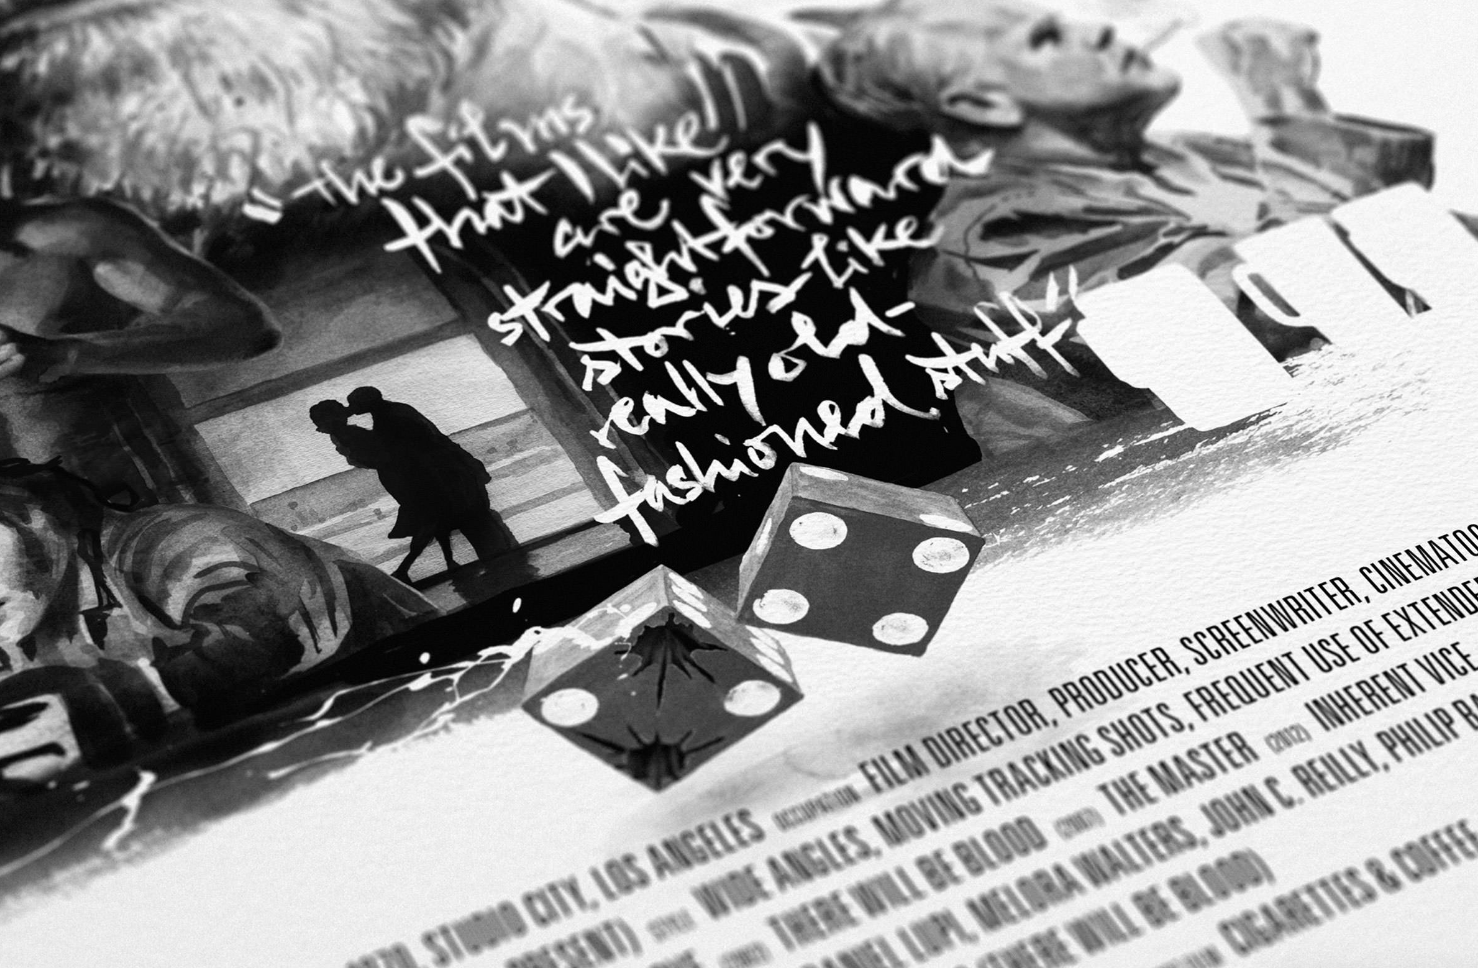 "The films
that I like
are very
straightforward
stories like
really old-
fashioned stuff"
STUDIO CITY, LOS ANGELES OCCUPATION FILM DIRECTOR, PRODUCER, SCREENWRITER,
PRESENT) STYLE WIDE ANGLES, MOVING TRACKING SHOTS, FREQUENT USE OF
(2007) THERE WILL BE BLOOD (2007) THE MASTER (2012) INHERENT VICE
LUPI, MELORA WALTERS, JOHN C. REILLY, PHILIP
(THERE WILL BE BLOOD)
CIGARETTES & COFFEE